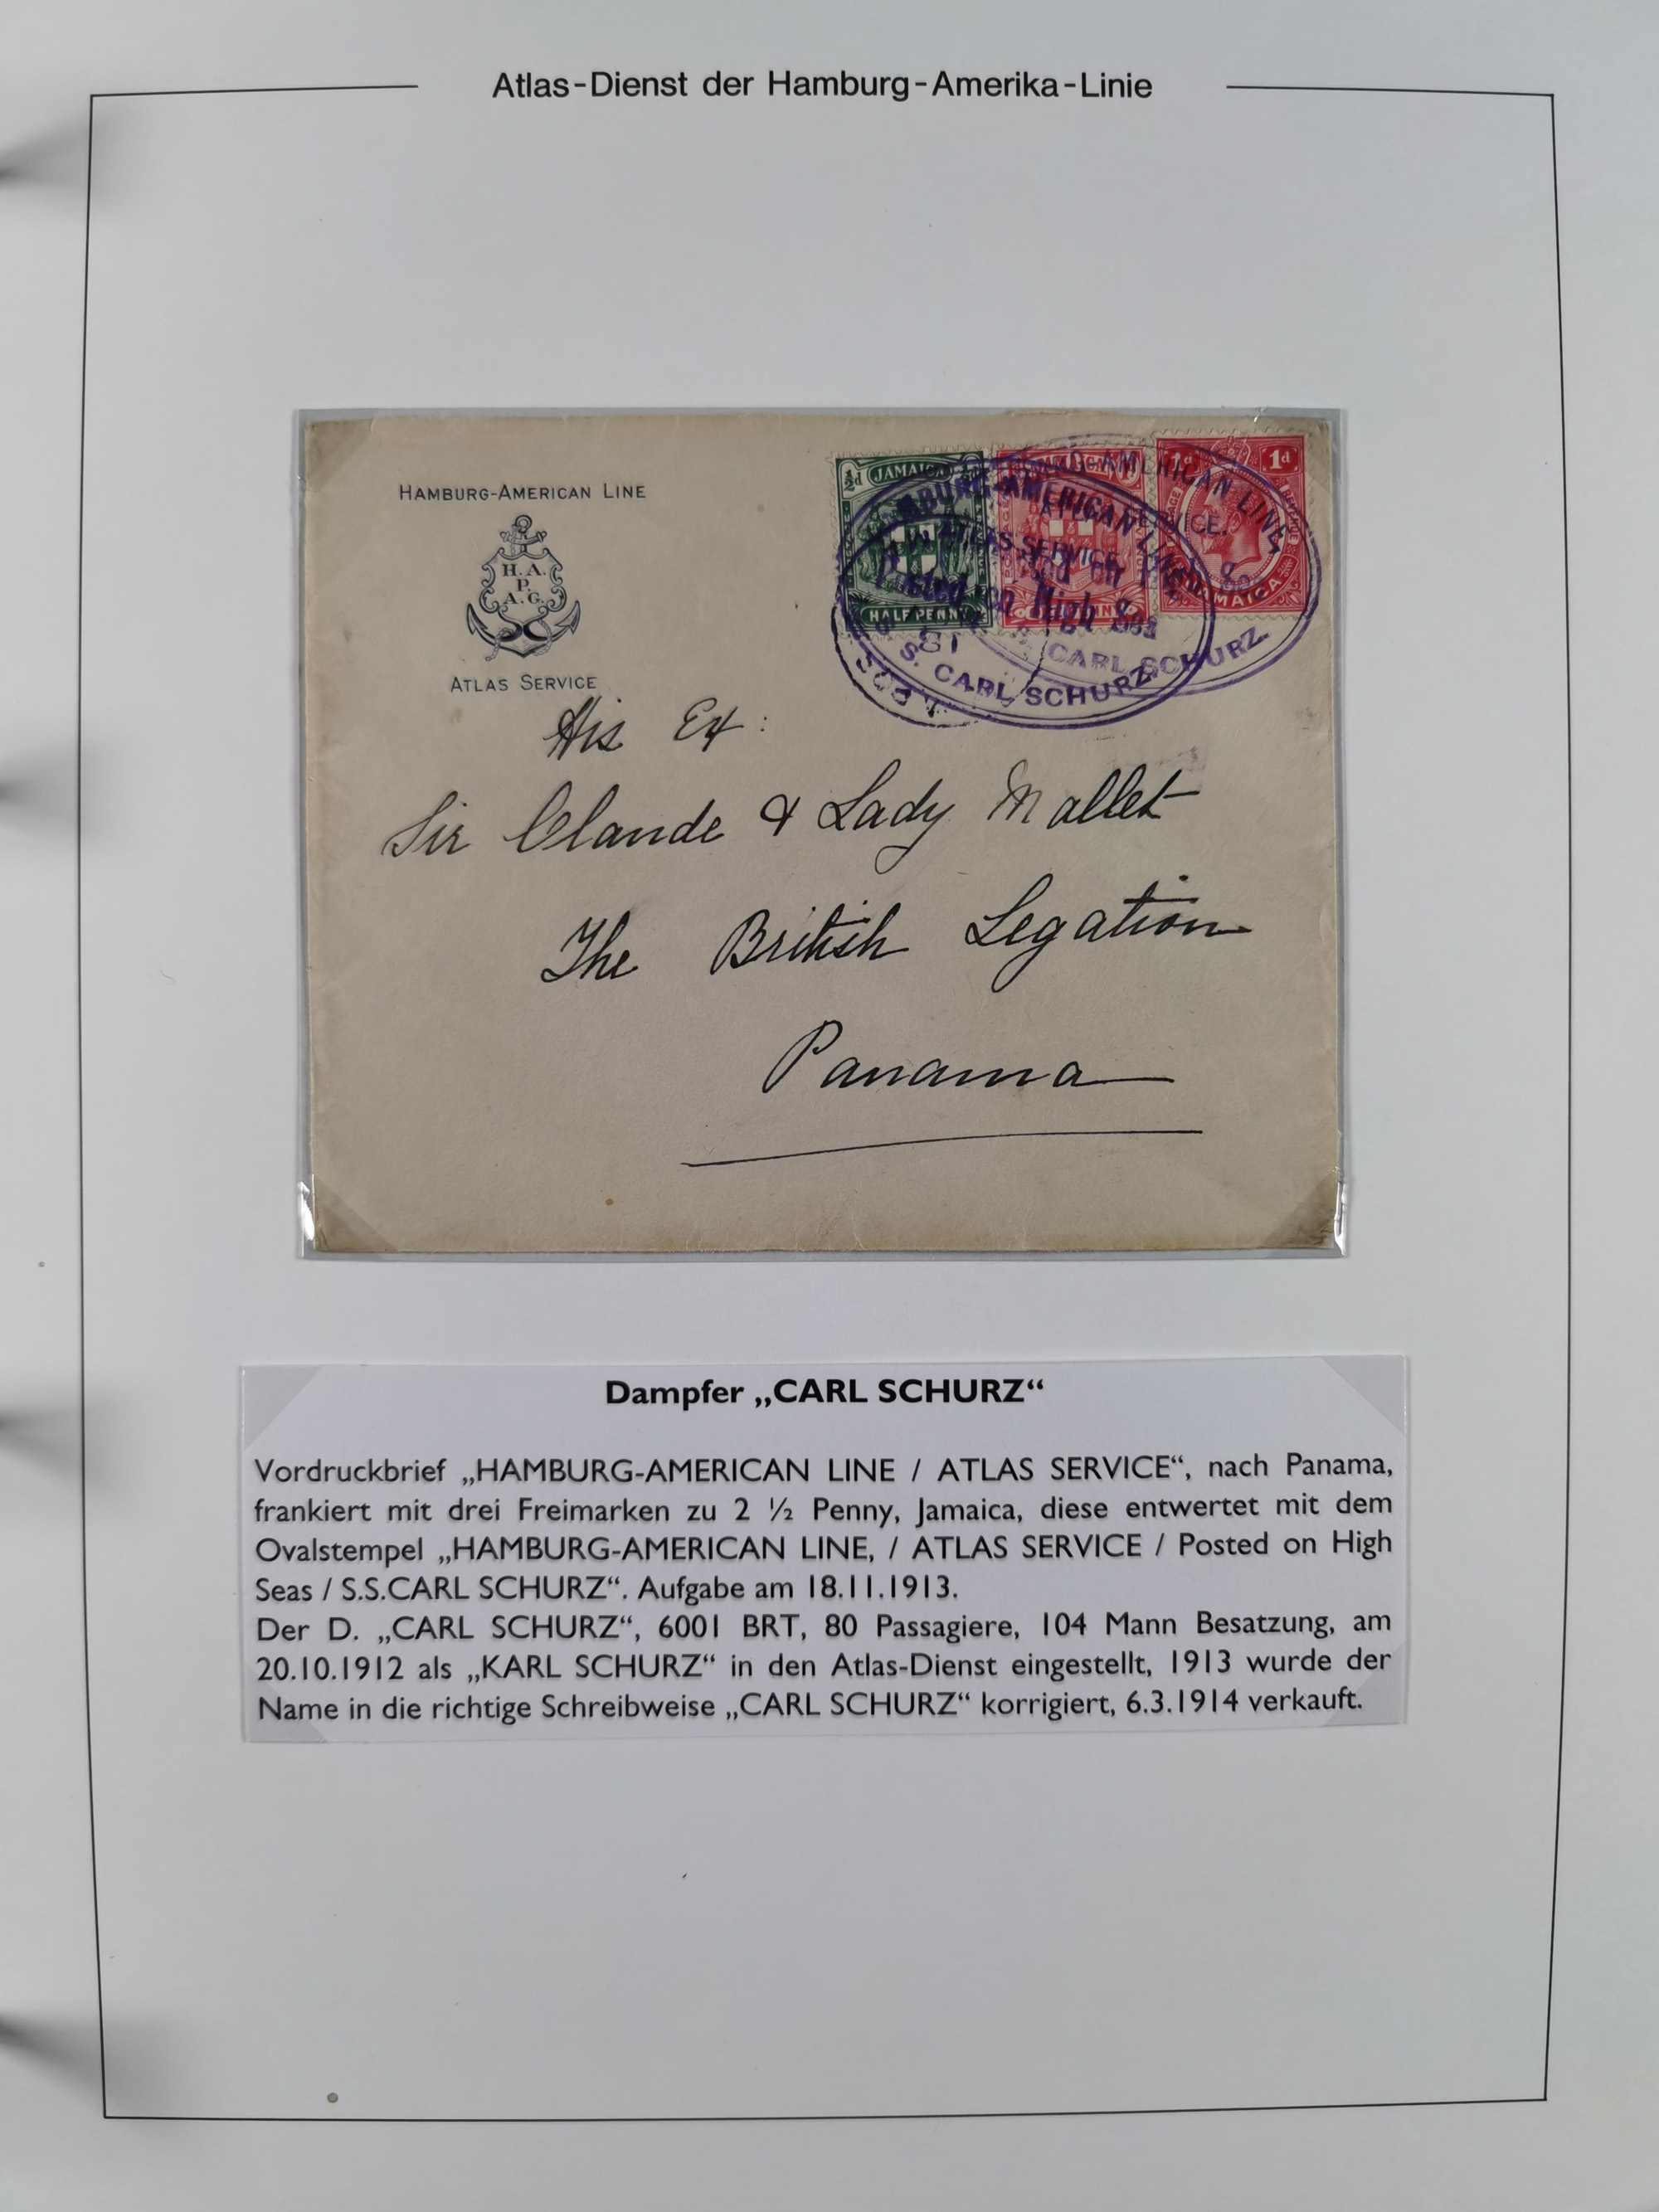 Atlas-Dienst der Hamburg-Amerika-Linie
HAMBURG-AMERICAN LINE
H.A.
P.
A.G.
ATLAS SERVICE
½d JAMAICA
HALF PENNY
1d
1d
JAMAICA
AMERICAN LINE,
SERVICE.
CARL SCHURZ.
HAMBURG-AMERICAN LINE,
ATLAS SERVICE
Posted on High Seas
S. CARL SCHURZ.
His Ex:
Sir Claude & Lady Mallet
The British Legation
Panama
Dampfer „CARL SCHURZ“
Vordruckbrief „HAMBURG-AMERICAN LINE / ATLAS SERVICE“, nach Panama,
frankiert mit drei Freimarken zu 2 ½ Penny, Jamaica, diese entwertet mit dem
Ovalstempel „HAMBURG-AMERICAN LINE, / ATLAS SERVICE / Posted on High
Seas / S.S.CARL SCHURZ“. Aufgabe am 18.11.1913.
Der D. „CARL SCHURZ“, 6001 BRT, 80 Passagiere, 104 Mann Besatzung, am
20.10.1912 als „KARL SCHURZ“ in den Atlas-Dienst eingestellt, 1913 wurde der
Name in die richtige Schreibweise „CARL SCHURZ“ korrigiert, 6.3.1914 verkauft.